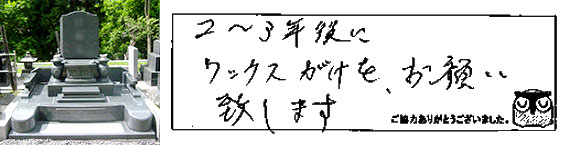 2〜3年後に
ワックスがけを、お願い
致します
ご協力ありがとうございました。